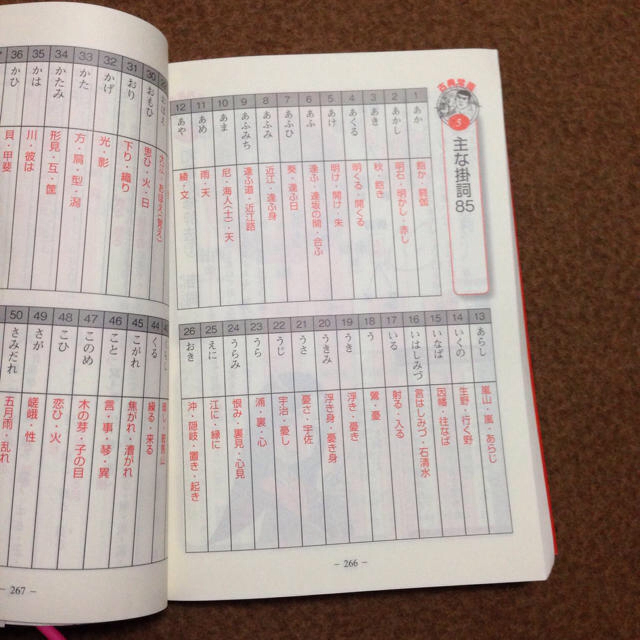 5
主な掛詞85
1 あか 飽か・閼伽
2 あかし 明石・明かし・赤し
3 あき 秋・飽き
4 あくる 明くる・開くる
5 あけ 明け・開け・朱
6 あふ 逢ふ・逢坂の関・合ふ
7 あふひ 葵・逢ふ日
8 あふみ 近江・逢ふ身
9 あふみち 逢ふ道・近江路
10 あま 尼・海人(士)・天
11 あめ 雨・天
12 あや 綾・文
13 あらし 嵐山・嵐・あらじ
14 いくの 生野・行く野
15 いなば 因幡・往なば
16 いはしみづ 言はしみづ・石清水
17 いる 射る・入る
18 う 鵜・憂
19 うき 浮き・憂き
20 うきみ 浮き身・憂き身
21 うさ 憂さ・宇佐
22 うじ 宇治・憂し
23 うら 浦・裏・心
24 うらみ 恨み・裏見・心見
25 えに 江に・縁に
26 おき 沖・隠岐・置き・起き
- 266 -
30 おもひ 思ひ・火・日
31 おり 下り・織り
32 かげ 光・影
33 かた 方・肩・型・潟
34 かたみ 形見・互・筐
35 かは 川・彼は
36 かひ 貝・甲斐
44 くる 繰る・来る
45 こがれ 焦がれ・漕がれ
46 こと 言・事・琴・異
47 このめ 木の芽・子の目
48 こひ 恋ひ・火
49 さが 嵯峨・性
50 さみだれ 五月雨・乱れ
- 267 -